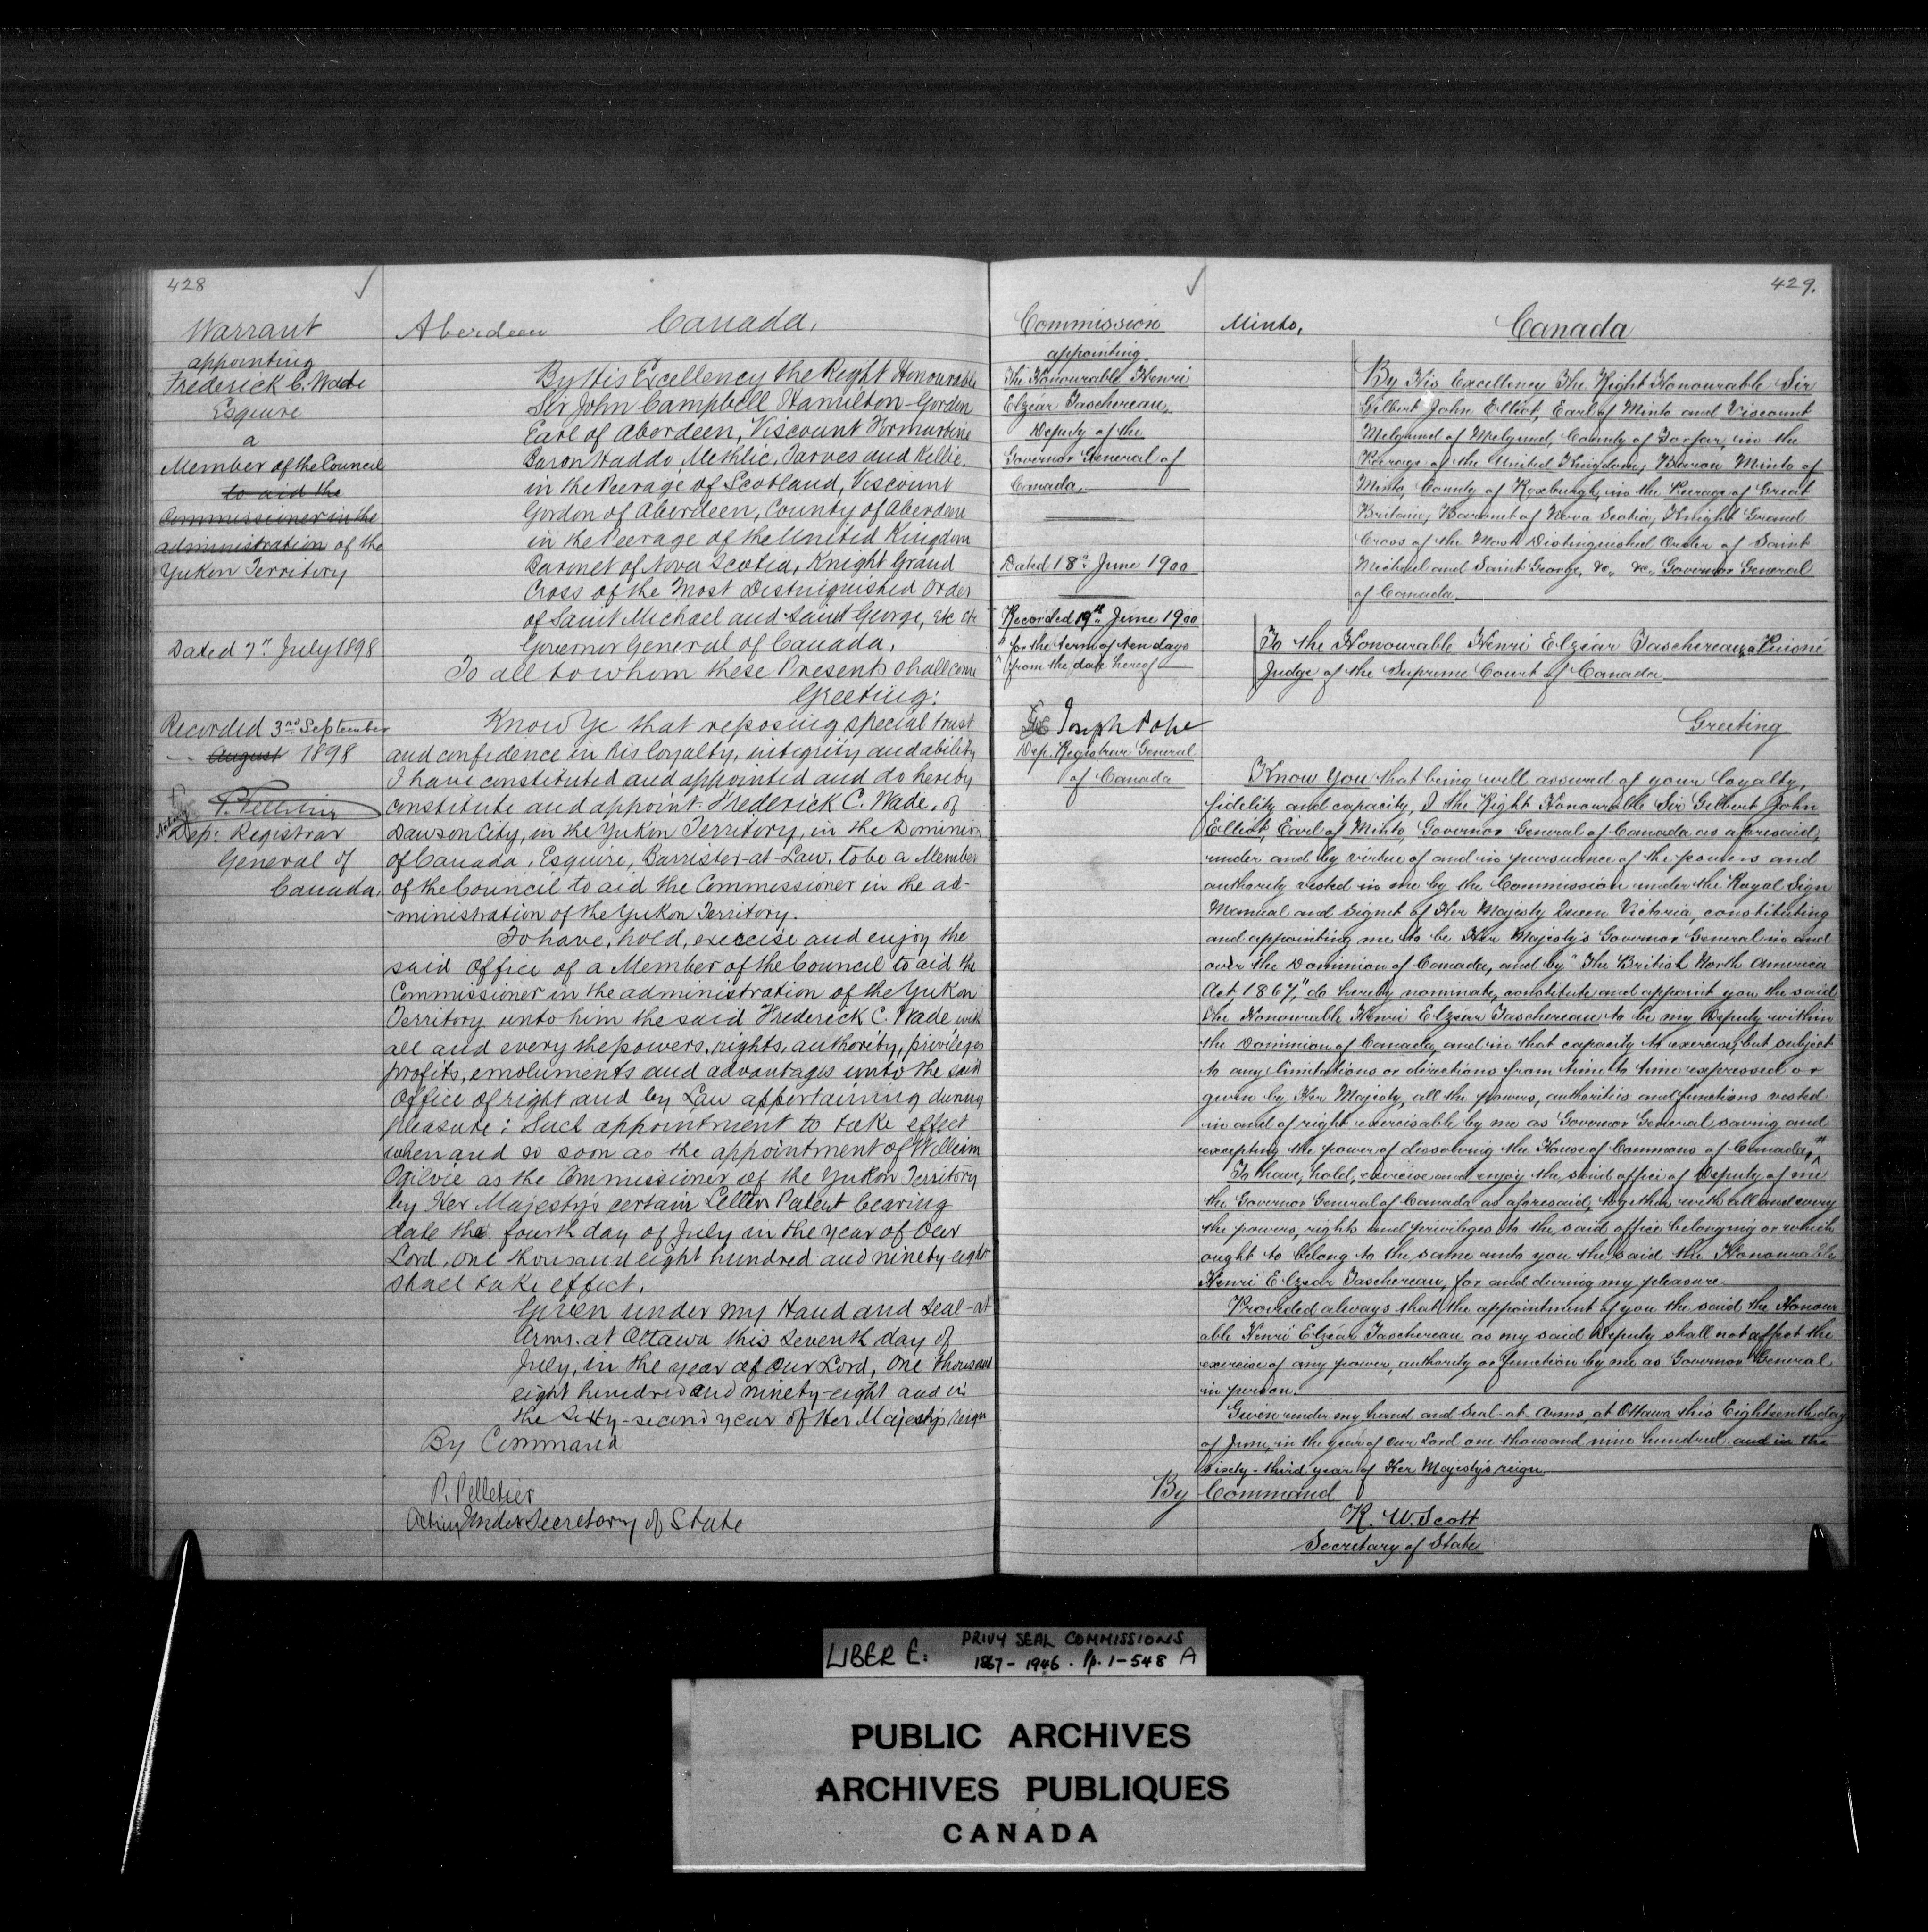 428
Warrant
appointing
Frederick C. Wade
Esquire
a
Member of the Council
to aid the
Commissioner in the
administration of the
Yukon Territory
Dated 7th July 1898
Recorded 3rd September
August 1898
P. Pelletier
Acting
Dep: Registrar
General of
Canada.
Aberdeen Canada.
By His Excellency the Right Honourable
Sir John Campbell Hamilton-Gordon
Earl of Aberdeen, Viscount Formartine
Baron Haddo, Methlic, Tarves and Kellie,
in the Peerage of Scotland, Viscount
Gordon of Aberdeen, County of Aberdeen
in the Peerage of the United Kingdom
Baronet of Nova Scotia, Knight Grand
Cross of the Most Distinguished Order
of Saint Michael and Saint George, Etc Etc
Governor General of Canada.
To all to whom these Presents shall come
Greeting:
Know Ye that reposing special trust
and confidence in his loyalty, integrity and ability
I have constituted and appointed and do hereby
constitute and appoint Frederick C. Wade, of
Dawson City, in the Yukon Territory, in the Dominion
of Canada, Esquire, Barrister-at-Law, to be a Member
of the Council to aid the Commissioner in the ad-
-ministration of the Yukon Territory.
To have, hold, exercise and enjoy the
said Office of a Member of the Council to aid the
Commissioner in the administration of the Yukon
Territory unto him the said Frederick C. Wade with
all and every the powers, rights, authority, privileges
profits, emoluments and advantages unto the said
Office of right and by Law appertaining during
pleasure: Such appointment to take effect
when and so soon as the appointment of William
Ogilvie as the Commissioner of the Yukon Territory
by Her Majesty's certain Letters Patent bearing
date the fourth day of July in the year of Our
Lord, one thousand eight hundred and ninety-eight
shall take effect.
Given under my Hand and Seal-at
Arms. at Ottawa this seventh day of
July, in the year of Our Lord, One thousand
eight hundred and ninety-eight and in
the Sixty-second year of Her Majesty's reign
By Command
P. Pelletier
Acting Under Secretary of State
429.
Commission
appointing
The Honourable Henri
Elzéar Taschereau,
Deputy of the
Governor General of
Canada.
Dated 18th June 1900
Recorded 19th June 1900
" for the term of ten days
^ from the date hereof
Joseph Pope
Dep. Registrar General
of Canada
Minto, Canada
By His Excellency The Right Honourable Sir
Gilbert John Elliot, Earl of Minto and Viscount
Melgund of Melgund, County of Forfar, in the
Peerage of the United Kingdom; Baron Minto of
Minto, County of Roxburgh, in the Peerage of Great
Britain; Baronet of Nova Scotia; Knight Grand
Cross of the Most Distinguished Order of Saint
Michael and Saint George, &c., &c., Governor General
of Canada.
To the Honourable Henri Elzéar Taschereau, a Puisné
Judge of the Supreme Court of Canada
Greeting
Know You that being well assured of your loyalty,
fidelity and capacity, I the Right Honourable Sir Gilbert John
Elliot, Earl of Minto, Governor General of Canada as aforesaid,
under and by virtue of and in pursuance of the powers and
authority vested in me by the Commission under the Royal Sign
Manual and Signet of Her Majesty Queen Victoria, constituting
and appointing me to be Her Majesty's Governor General in and
over the Dominion of Canada, and by "The British North America
Act, 1867," do hereby nominate, constitute and appoint you the said
the Honourable Henri Elzéar Taschereau to be my Deputy within
the Dominion of Canada, and in that capacity to exercise, but subject
to any limitations or directions from time to time expressed or
given by Her Majesty, all the powers, authorities and functions vested
in and of right exercisable by me as Governor General saving and
excepting the power of dissolving the House of Commons of Canada, "^
To have, hold, exercise and enjoy the said office of Deputy of me
the Governor General of Canada as aforesaid, together with all and every
the powers, rights and privileges to the said office belonging or which
ought to belong to the same unto you the said the Honourable
Henri Elzéar Taschereau, for and during my pleasure.
Provided always that the appointment of you the said the Honour
able Henri Elzéar Taschereau as my said Deputy shall not affect the
exercise of any power, authority or function by me as Governor General
in person.
Given under my hand and Seal-at-Arms, at Ottawa this Eighteenth day
of June, in the year of Our Lord one thousand nine hundred and in the
sixty-third year of Her Majesty's reign
By Command
R. W. Scott
Secretary of State
LIBER E: PRIVY SEAL COMMISSIONS
1867-1946. Pp. 1-548 A
PUBLIC ARCHIVES
ARCHIVES PUBLIQUES
CANADA